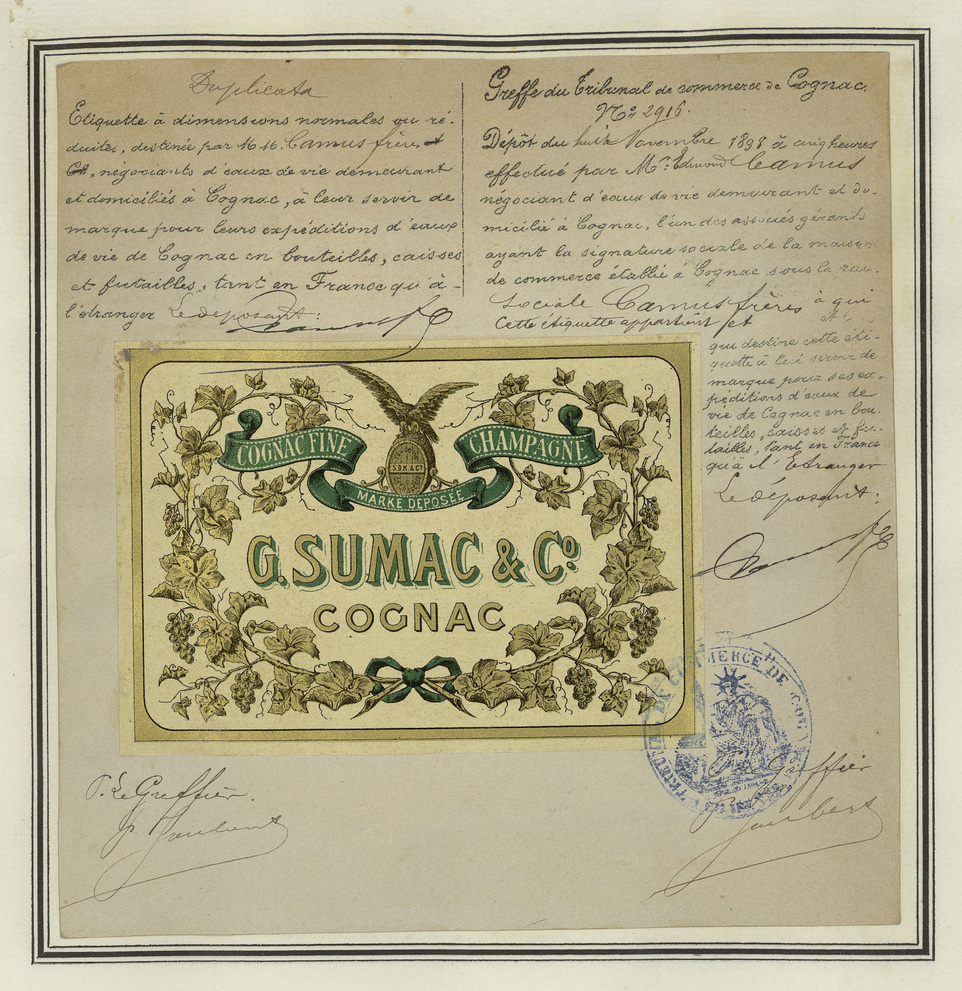 Duplicata
Etiquette à dimensions normales ou ré-
duites, destinée par M.M. Camus frères et
Cie, négociants d'eaux de vie demeurant
et domiciliés à Cognac, à leur servir de
marque pour leurs expéditions d'eaux
de vie de Cognac en bouteilles, caisses
et futailles, tant en France qu'à
l'étranger Le déposant:
Greffe du Tribunal de commerce de Cognac.
No 2916.
Dépôt du huit Novembre 1898 à cinq heures
effectué par Mr. Edmond Camus
négociant d'eaux de vie demeurant et do-
micilié à Cognac, l'un des associés gérants
ayant la signature sociale de la maison
de commerce établie à Cognac sous la rai-
sociale Camus frères à qui
Cette étiquette appartient et
qui destine cette éti-
quette à lui servir de
marque pour ses ex-
péditions d'eaux de
vie de Cognac en bou-
teilles, caisses et fu-
tailles, tant en France
qu'à l'Etranger
Le déposant:
COGNAC FINE CHAMPAGNE
S.D.M. & Co
MARKE DÉPOSÉE
G. SUMAC & Co.
COGNAC
TRIBUNAL DE COMMERCE DE COGNAC
P. Le Greffier.
Greffier
Joubert